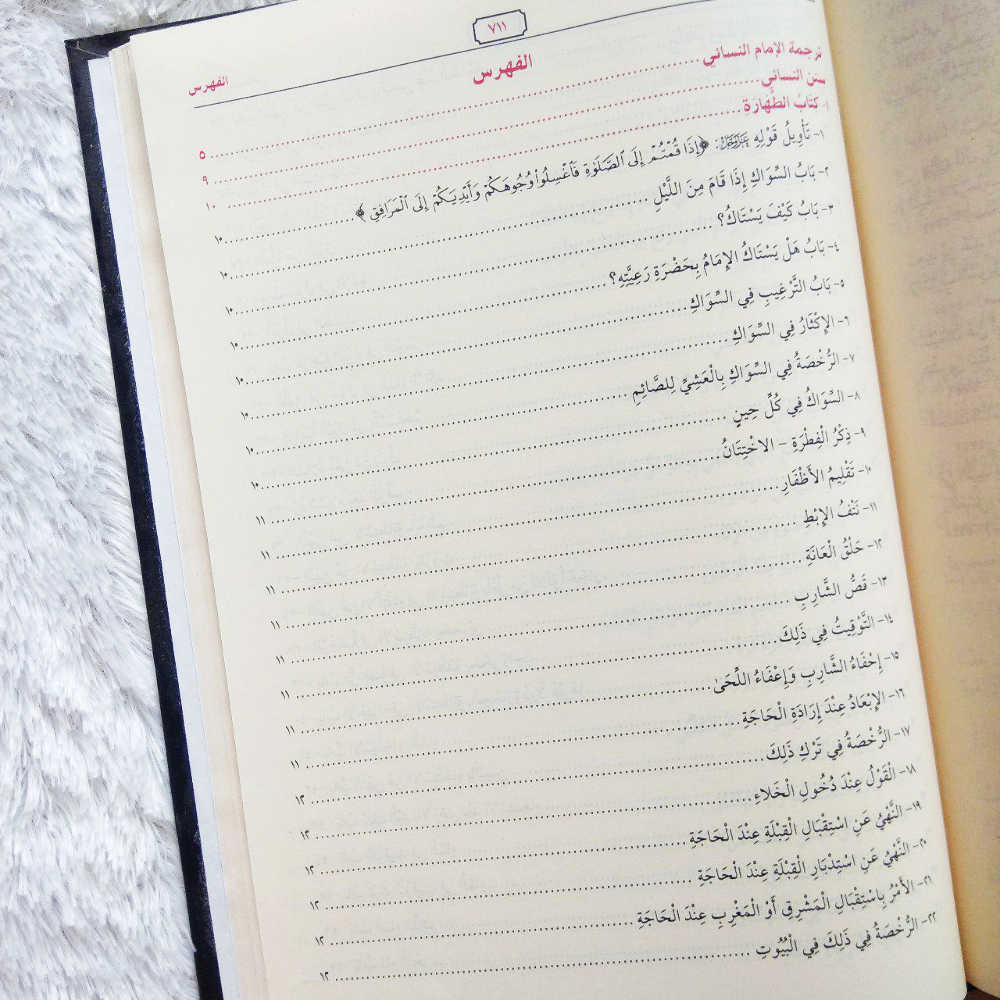 ٧١١
الفهرس
الفهرس
ترجمة الإمام النسائي ٥
سنن النسائي ٩
١- كتاب الطَّهَارة ١٠
١- تَأْوِيلُ قَوْلِهِ عَزَّ وَجَلَّ: ﴿إِذَا قُمْتُمْ إِلَى ٱلصَّلَوٰةِ فَٱغْسِلُوا۟ وُجُوهَكُمْ وَأَيْدِيَكُمْ إِلَى ٱلْمَرَافِقِ﴾ ١٠
٢- بَابُ السِّوَاكِ إِذَا قَامَ مِنَ اللَّيْلِ ١٠
٣- بَابُ كَيْفَ يَسْتَاكُ؟ ١٠
٤- بَابُ هَلْ يَسْتَاكُ الإِمَامُ بِحَضْرَةِ رَعِيَّتِهِ؟ ١٠
٥- بَابُ التَّرْغِيبِ فِي السِّوَاكِ ١٠
٦- الإِكْثَارُ فِي السِّوَاكِ ١٠
٧- الرُّخْصَةُ فِي السِّوَاكِ بِالْعَشِيِّ لِلصَّائِمِ ١٠
٨- السِّوَاكُ فِي كُلِّ حِينٍ ١٠
٩- ذِكْرُ الْفِطْرَةِ - الاخْتِتَانُ ١١
١٠- تَقْلِيمُ الأَظْفَارِ ١١
١١- نَتْفُ الإِبْطِ ١١
١٢- حَلْقُ الْعَانَةِ ١١
١٣- قَصُّ الشَّارِبِ ١١
١٤- التَّوْقِيتُ فِي ذَلِكَ ١١
١٥- إِحْفَاءُ الشَّارِبِ وَإِعْفَاءُ اللِّحَىٰ ١١
١٦- الإِبْعَادُ عِنْدَ إِرَادَةِ الْحَاجَةِ ١١
١٧- الرُّخْصَةُ فِي تَرْكِ ذَلِكَ ١٢
١٨- الْقَوْلُ عِنْدَ دُخُولِ الْخَلاءِ ١٢
١٩- النَّهْيُ عَنِ اسْتِقْبَالِ الْقِبْلَةِ عِنْدَ الْحَاجَةِ ١٢
٢٠- النَّهْيُ عَنِ اسْتِدْبَارِ الْقِبْلَةِ عِنْدَ الْحَاجَةِ ١٢
٢١- الأَمْرُ بِاسْتِقْبَالِ الْمَشْرِقِ أَوْ الْمَغْرِبِ عِنْدَ الْحَاجَةِ ١٢
٢٢- الرُّخْصَةُ فِي ذَلِكَ فِي الْبُيُوتِ ١٢